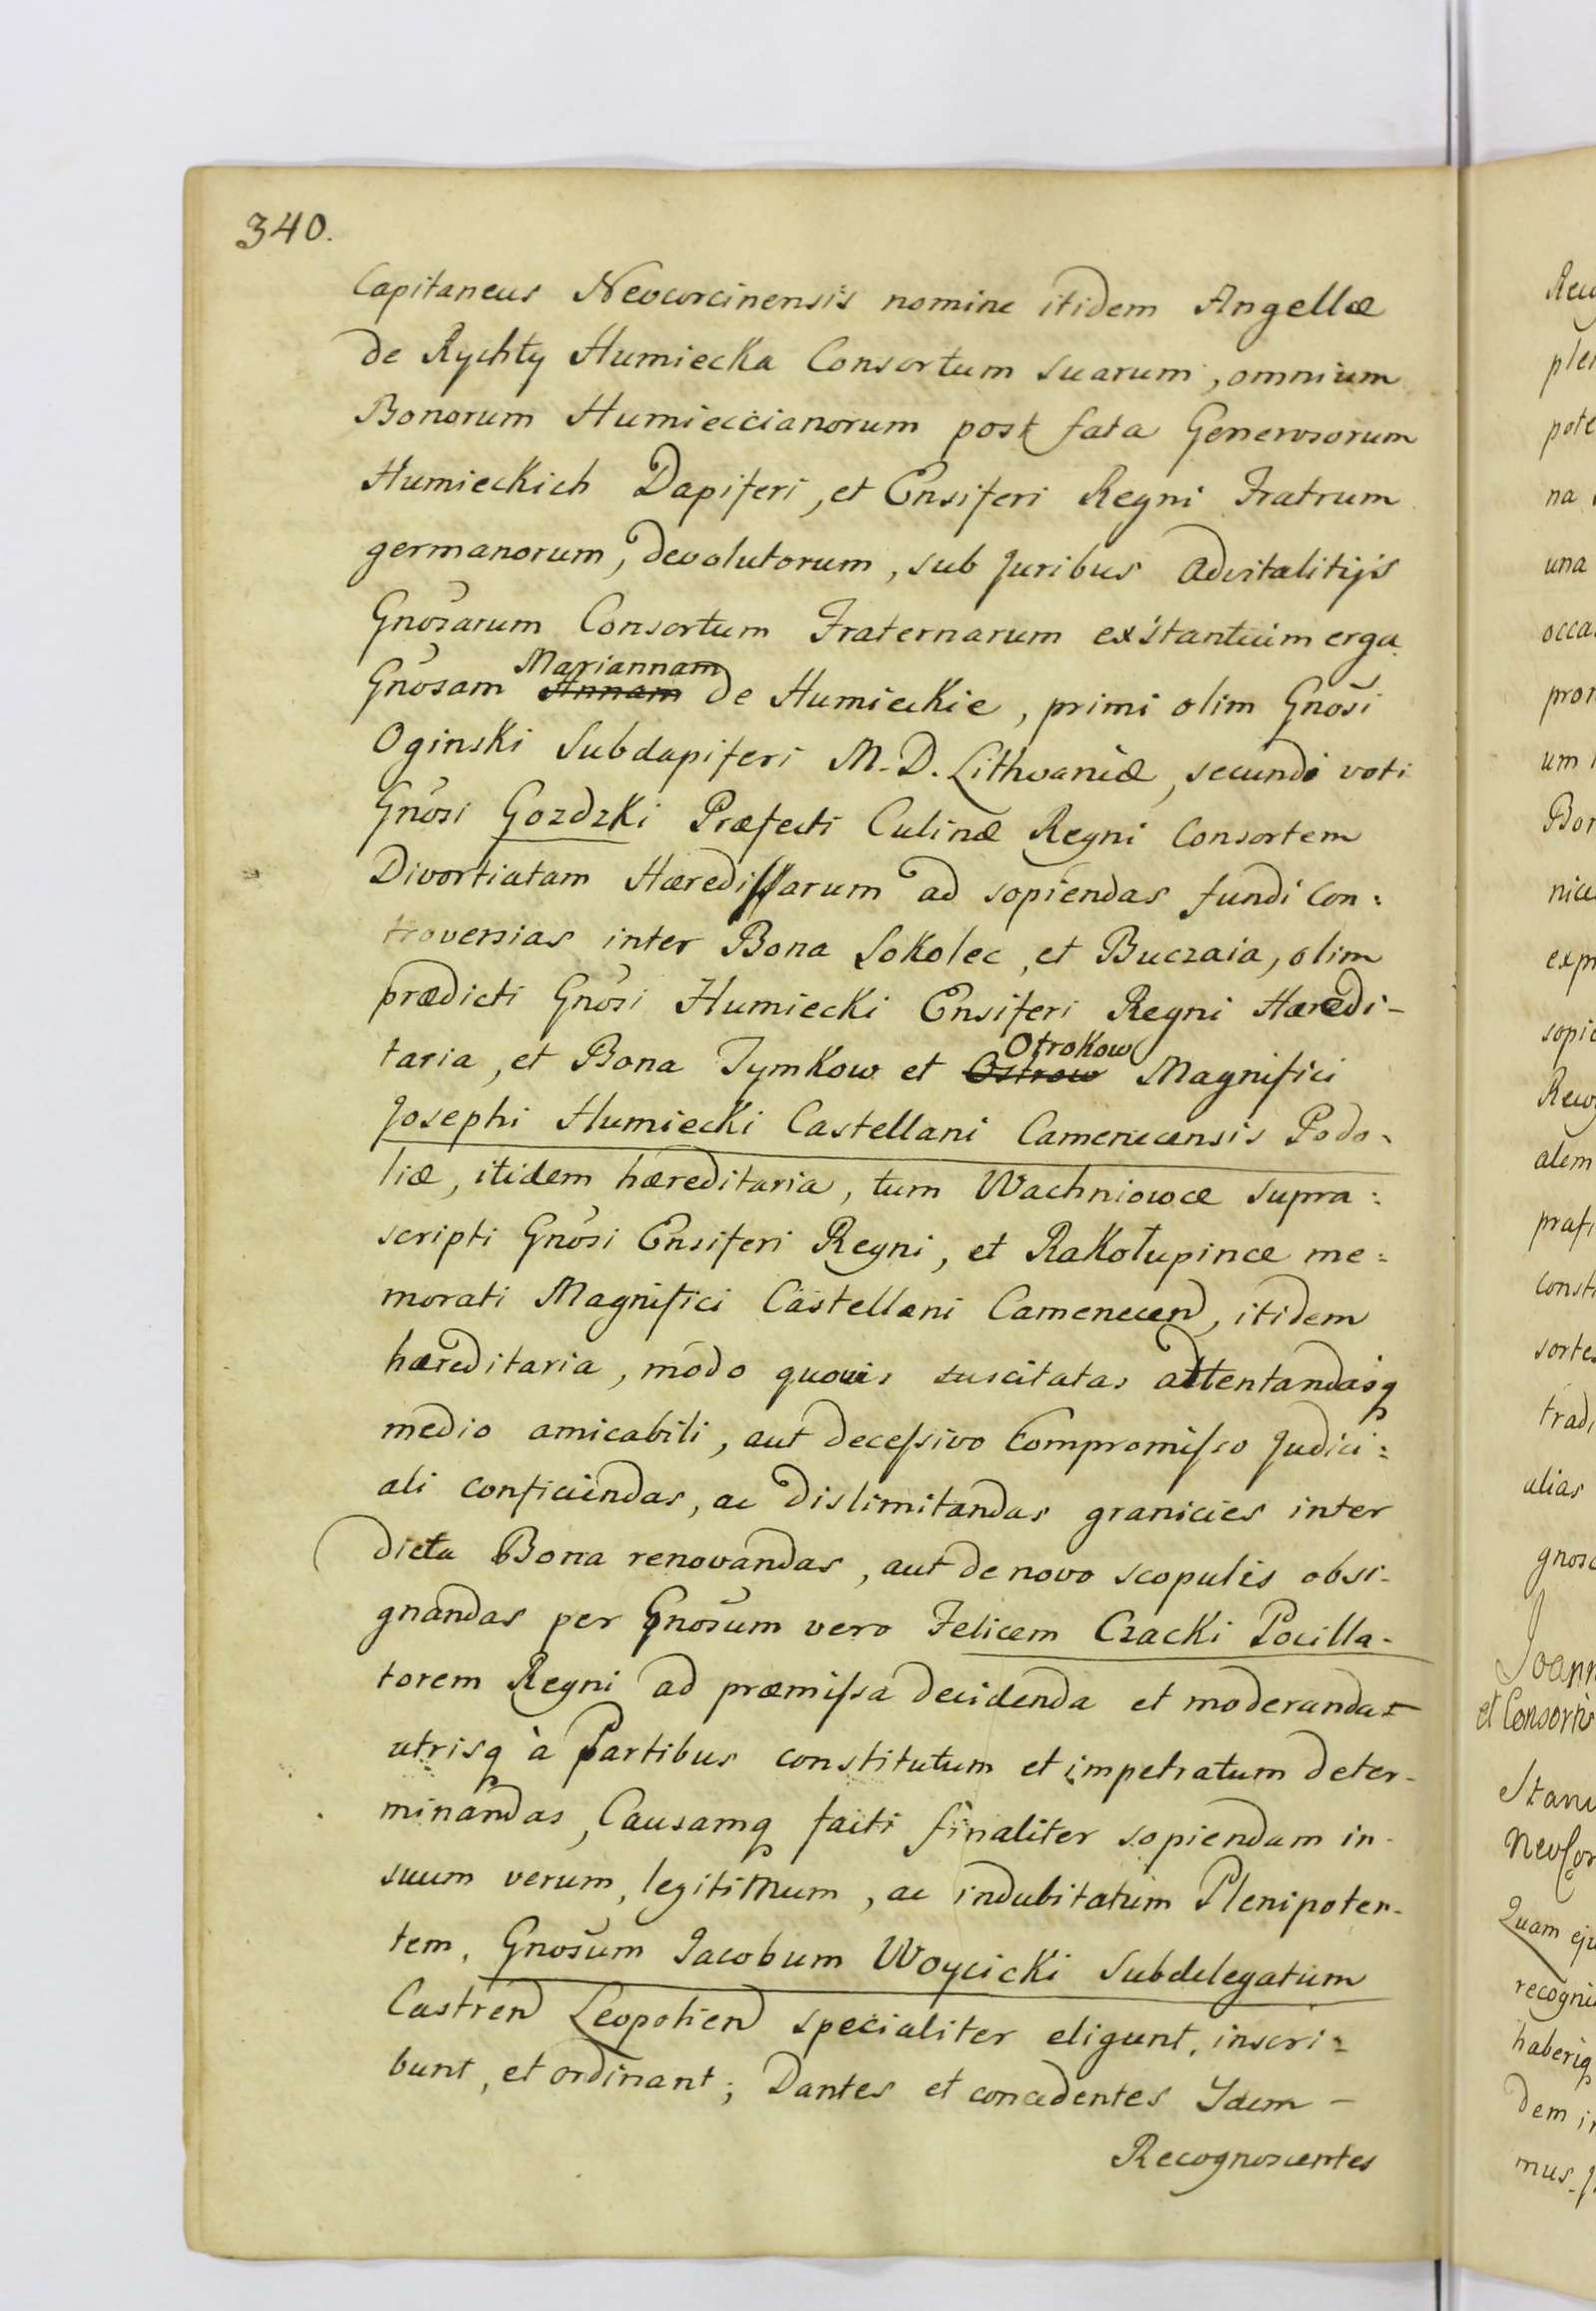 340.
Capitaneus Neocorcinensis nomine itidem Angellæ
de Rychty Humiecka Consortum suarum, omnium
Bonorum Humieccianorum post fata Generosorum
Humieckich Dapiferi, et Ensiferi Regni Fratrum
germanorum, devolutorum, sub Juribus Advitalitijs
Gnosarum Consortum Fraternarum existantium erga
Mariannam
Gnosam Annam de Humieckie, primi olim Gnosi
Oginski Subdapiferi M. D. Lithvaniæ, secundi voti
Gnosi Gozdzki Præfecti Culinæ Regni Consortem
Divortiatam Hæredissarum ad sopiendas fundi Con:
troversias inter Bona Sokolec, et Buczaia, olim
prædicti Gnosi Humiecki Ensiferi Regni Hæredi-
Otrokow
taria, et Bona Tymkow et Ostrow Magnifici
Josephi Humiecki Castellani Camenecensis Podo-
liæ, itidem hæreditaria, tum Wachniowce supra:
scripti Gnosi Ensiferi Regni, et Rakołupince me=
morati Magnifici Castellani Camenecen, itidem
hæreditaria, modo quovis suscitatas attentandasq
medio amicabili, aut decessivo Compromisso Judici=
ali conficiendas, ac dislimitandas granicies inter
dicta Bona renovandas, aut de novo scopulis obsi-
gnandas per Gnosum vero Felicem Czacki Pocilla-
torem Regni ad præmissa decidenda et moderandas
utrisq à Partibus constitutum et impetratum deter-
minandas, Causamq facti finaliter sopiendam in-
suum verum, legitimum, ac indubitatum Plenipoten-
tem, Gnosum Jacobum Woycicki Subdelegatum
Castren Leopolien specialiter eligunt, inscri=
bunt, et ordinant; Dantes et concedentes Idem -
Recognoscentes
Joann
et Consortis
Quam eju
haberiq
dem in
mus